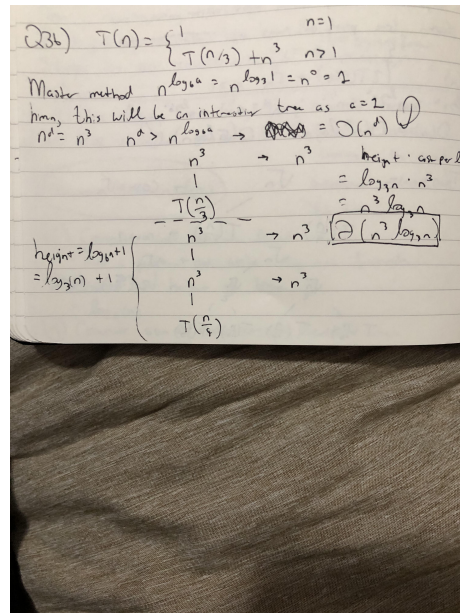 Q3b) T(n) = { 1 n=1
T(n/3) + n³ n>1
Master method n^log_b a = n^log_3 1 = n⁰ = 1
hmm, this will be an tree as a=1
n^d = n³ n^d > n^log_b a → = Θ(n^d)
n³ → n³ height ·
| = log₃n · n³
T(n/3) = n³ log₃n
n³ → n³ Θ(n³ log₃n)
height = log_b n + 1 |
= log₃(n) + 1 n³ → n³
|
T(n/9)